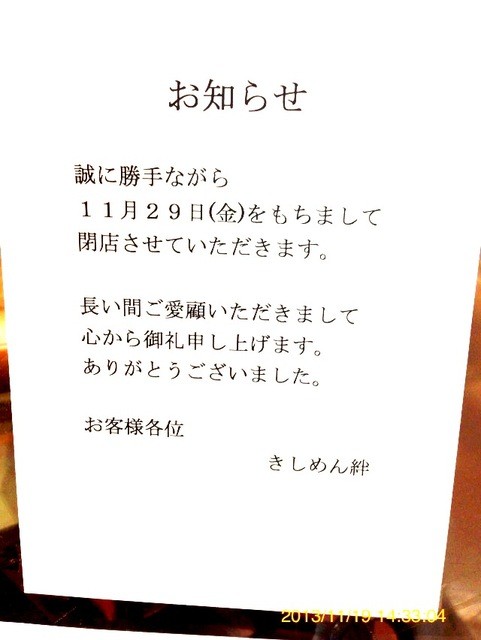 お知らせ
誠に勝手ながら
１１月２９日(金)をもちまして
閉店させていただきます。
長い間ご愛顧いただきまして
心から御礼申し上げます。
ありがとうございました。
お客様各位
きしめん絆
2013/11/19 14:33:04